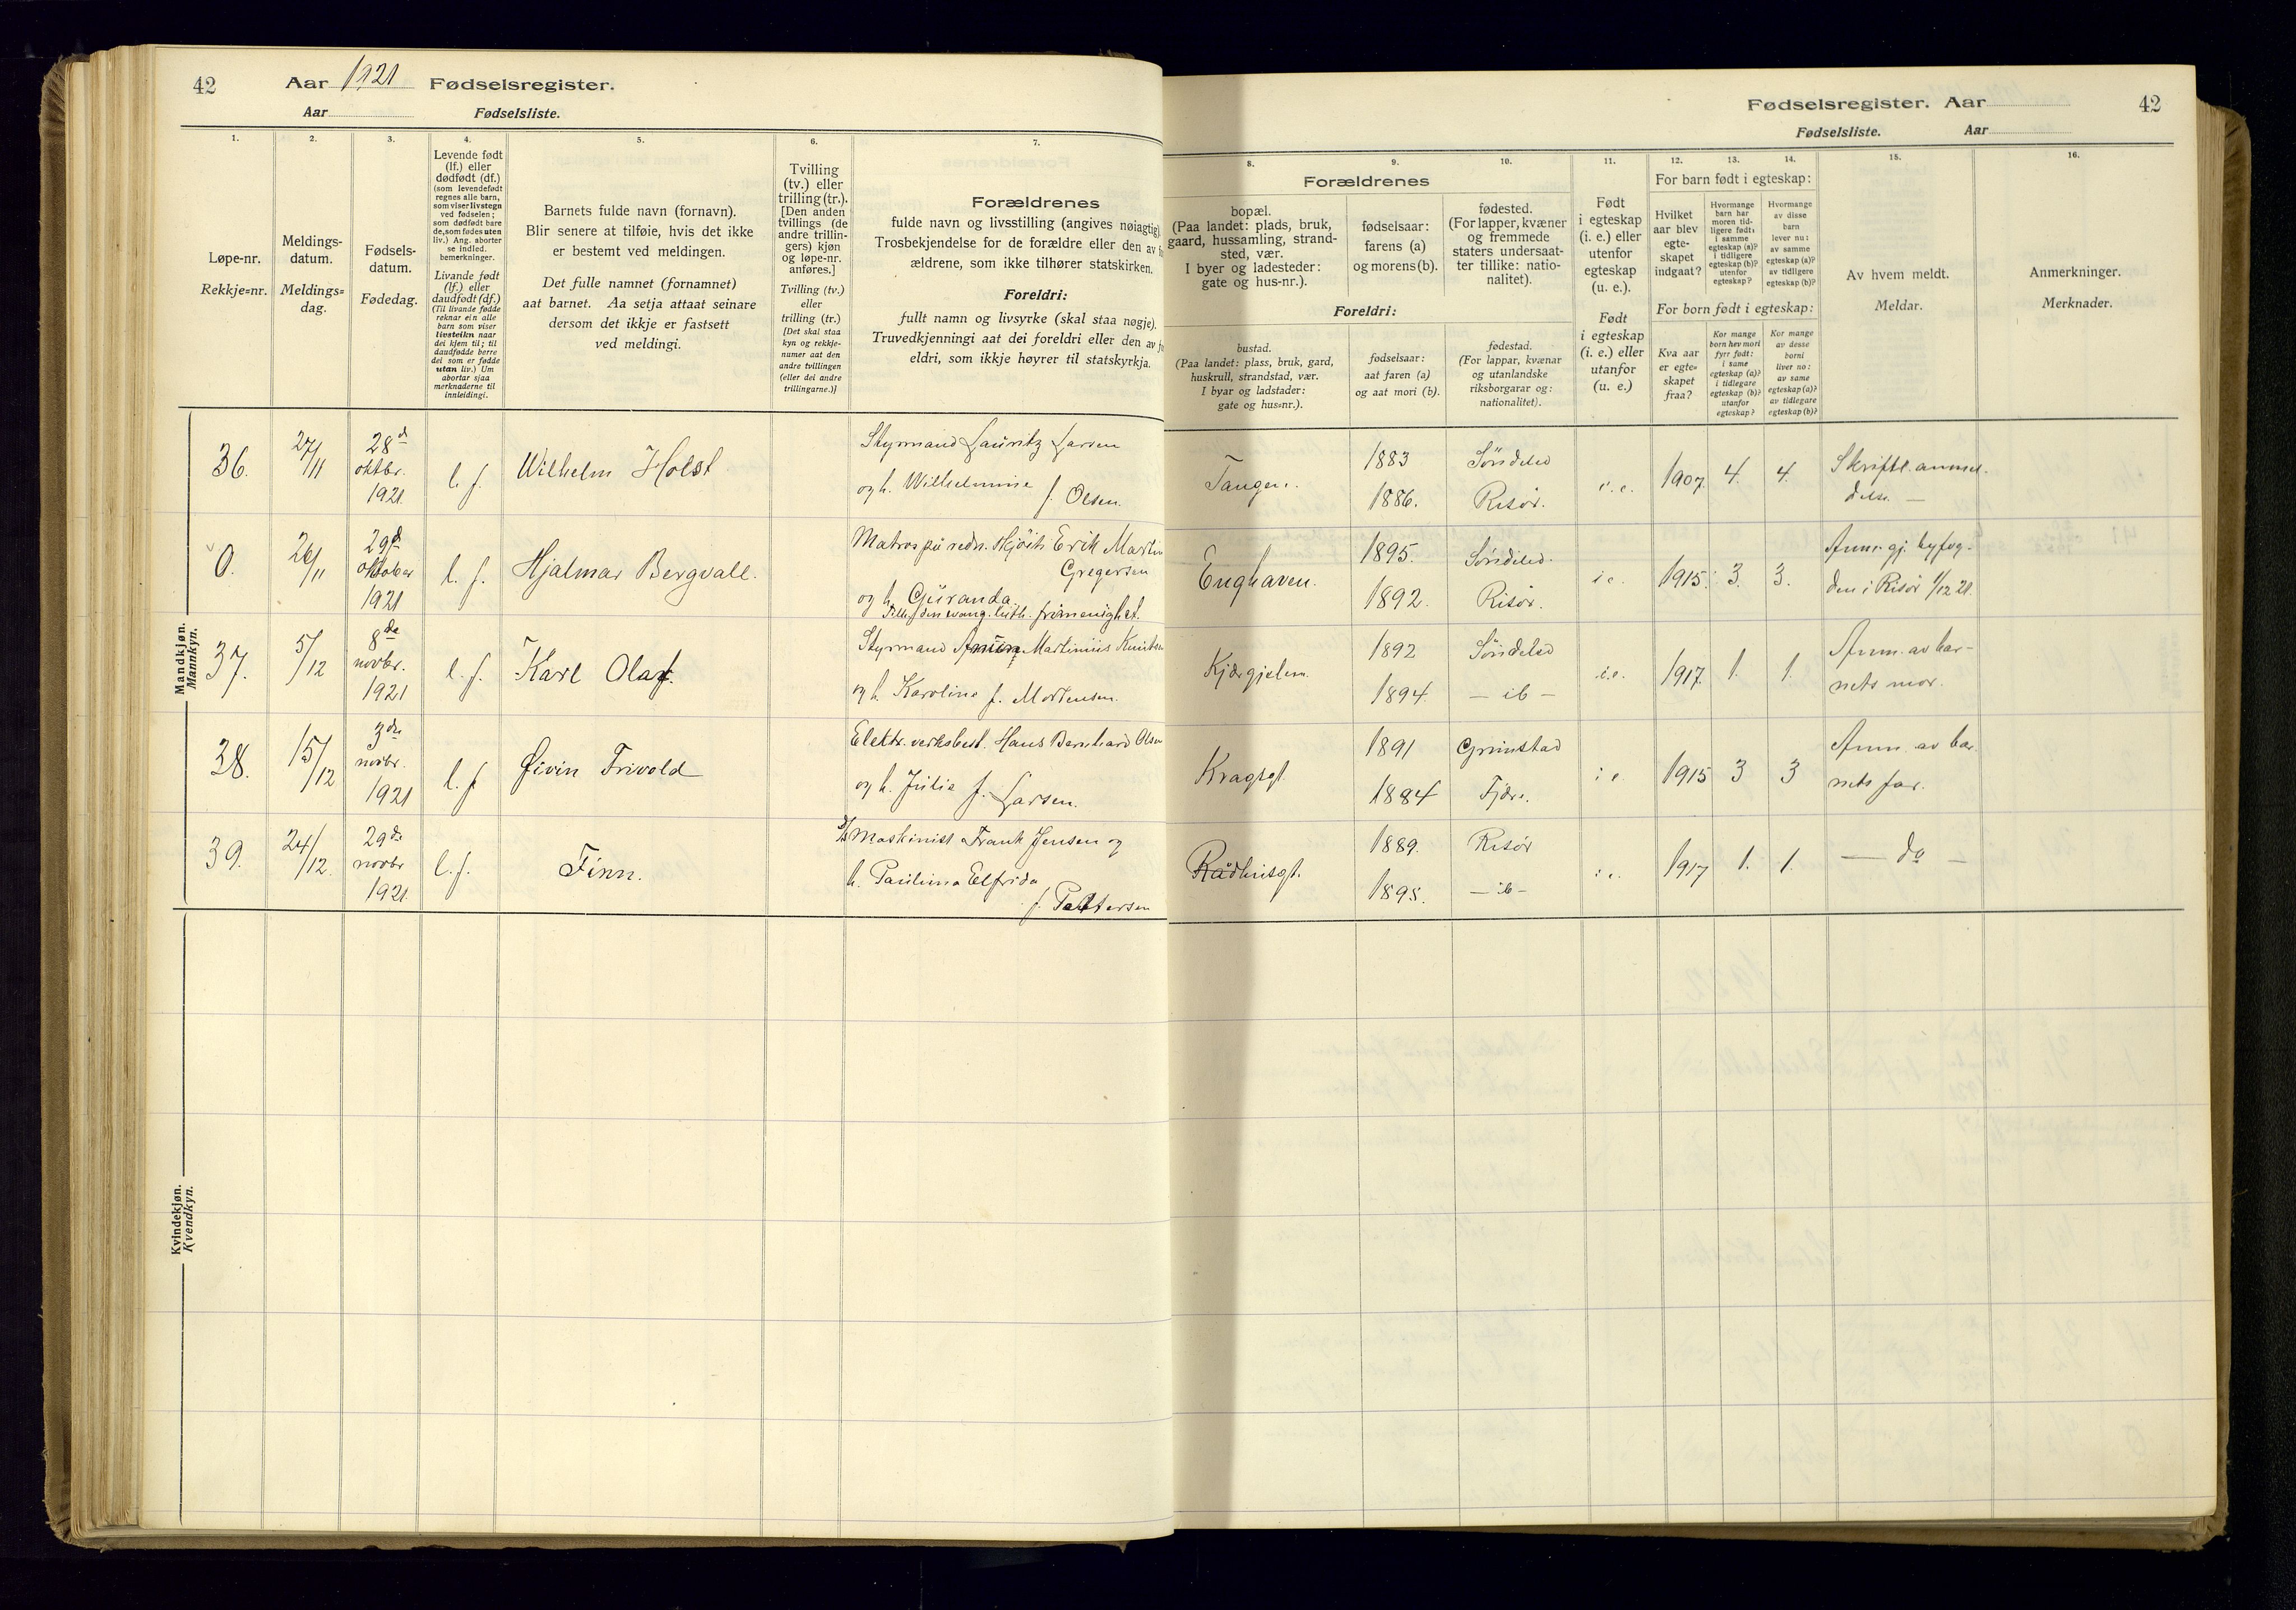 42
Aar 1921 Fødselsregister.
Aar Fødselsliste.
Fødselsregister. Aar
42
Fødselsliste. Aar
1.
Løpe-nr.
Rekkje=nr.
2.
Meldings-
datum.
Meldings=
dag.
3.
Fødsels-
datum.
Fødedag.
4.
Levende født
(lf.) eller
dødfødt (df.)
(som levendefødt
regnes alle barn,
som viser livstegn
ved fødselen;
som dødfødt bare
de, som fødes uten
liv.) Ang. aborter
se indled.
bemerkninger.
Livande født
(lf.) eller
daudfødt (df.)
(Til livande fødde
reknar ein alle
barn som viser
livsteikn naar
dei kjem til; til
daudfødde berre
dei som er fødde
utan liv.) Um
abortar sjaa
merknaderne til
innleidingi.
5.
Barnets fulde navn (fornavn).
Blir senere at tilføie, hvis det ikke
er bestemt ved meldingen.
Det fulle namnet (fornamnet)
aat barnet. Aa setja attaat seinare
dersom det ikkje er fastsett
ved meldingi.
6.
Tvilling
(tv.) eller
trilling (tr.).
[Den anden
tvillings (de
andre trillin-
gers) kjøn
og løpe-nr.
anføres.]
Tvilling (tv.)
eller
trilling (tr.)
[Det skal staa
kyn og rekkje-
numer aat den
andre tvillingen
(eller dei andre
trillingarne.)]
7.
Forældrenes
fulde navn og livsstilling (angives nøiagtig).
Trosbekjendelse for de forældre eller den av
ældrene, som ikke tilhører statskirken.
Foreldri:
fullt namn og livsyrke (skal staa nøgje).
Truvedkjenningi aat dei foreldri eller den av
eldri, som ikkje høyrer til statskyrkja.
8.
9.
10.
Forældrenes
bopæl.
(Paa landet: plads, bruk,
gaard, hussamling, strand-
sted, vær.
I byer og ladesteder:
gate og hus-nr.).
fødselsaar:
farens (a)
og morens (b).
fødested.
(For lapper, kvæner
og fremmede
staters undersaat-
ter tillike: natio-
nalitet).
Foreldri:
bustad.
(Paa landet: plass, bruk, gard,
huskrull, strandstad, vær.
I byar og ladstader:
gate og hus=nr.).
fødselsaar:
aat faren (a)
og aat mori (b).
fødestad.
(For lappar, kvænar
og utanlandske
riksborgarar og:
nationalitet).
11.
Født
i egteskap
(i. e.) eller
utenfor
egteskap
(u. e.).
Født
i egteskap
(i. e.) eller
utanfor
(u. e.)
12.
13.
14.
For barn født i egteskap:
Hvilket
aar blev
egte-
skapet
indgaat?
Hvormange
barn har
moren tid-
ligere født:
i samme
egteskap (a)?
i tidligere
egteskap (b)?
utenfor
egteskap?
Hvormange
av disse
barn
lever nu:
av samme
egteskap (a)?
av tidligere
egteskap (b)?
For born født i egteskap:
Kva aar
er egte=
skapet
fraa?
Kor mange
born hev mori
fyrr født:
i same
egteskap (a)?
i tidlegare
egteskap (b)?
utanfor
egteskap?
Kor mange
av desse
borni
liver no:
av same
egteskap (a)?
av tidlegare
egteskap (b)?
15.
Av hvem meldt.
Meldar.
16.
Anmerkninger.
Merknader.
Mandkjøn.
Mannkyn.
36. 27/11 28d oktbr. 1921 l. f. Wilhelm Holst
Styrmand Lauritz Larsen
og h. Wilhelmine f. Olsen.
Tangen. 1883 1886. Søndeled Risør. i. e. 1907. 4. 4. Skriftl. anmel-
delse. —
0. 26/11 29d oktober 1921 l. f. Hjalmar Bergvall.
Erik Martin
Gregersen
og h. Guranda.
Enghaven. 1895. 1892. Søndeled. Risør. i e. 1915. 3. 3. Anm. gj. byfog-
den i Risør 1/12 21.
37. 5/12 8de novbr. 1921 l. f. Karl Olaf.
Styrmand Martinius
og h. Karoline f. Mortensen.
1892 1894. Søndeled — ib — i.e. 1917. 1. 1. Anm. av bar-
nets mor.
38. 15/12 3die novbr. 1921 l. f Øivin Trivold
Elektr. verksbest. Hans Bernhard Olsen
og h. Julie f. Larsen.
Kragsgt. 1891 1884 Grimstad Fjære. i e 1915 3 3 Anm. av bar-
nets far.
39. 24/12. 29de novbr 1921. l. f. Finn.
Maskinist Frank Jensen og
h. Pauline Elfrida
f. Pettersen
Rådhusgt. 1889. 1895. Risør — ib — i e. 1917 1. 1. — do —
Kvindekjøn.
Kvendkyn.